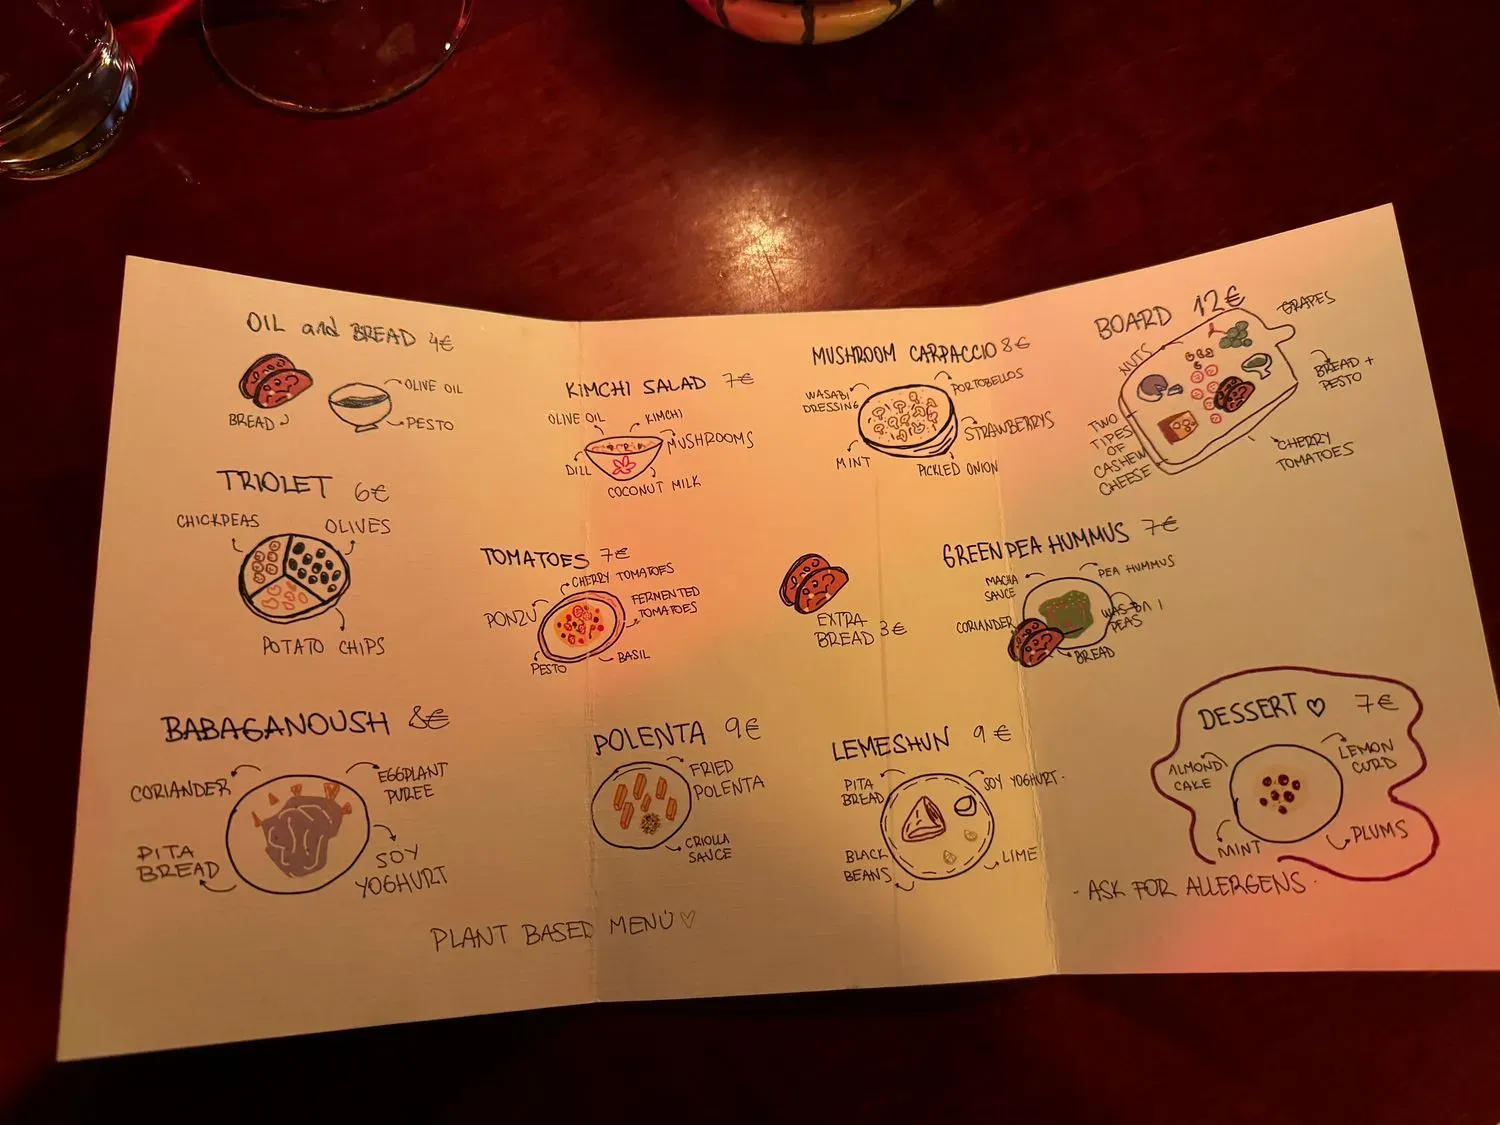 OIL and BREAD 4€
BREAD
OLIVE OIL
PESTO
TRIOLET 6€
CHICKPEAS
OLIVES
POTATO CHIPS
BABAGANOUSH 8€
CORIANDER
EGGPLANT
PUREE
PITA
BREAD
SOY
YOGHURT
KIMCHI SALAD 7€
OLIVE OIL
KIMCHI
MUSHROOMS
DILL
COCONUT MILK
TOMATOES 7€
CHERRY TOMATOES
PONZU
FERMENTED
TOMATOES
PESTO
BASIL
POLENTA 9€
FRIED
POLENTA
CRIOLLA
SAUCE
MUSHROOM CARPACCIO 8€
WASABI
DRESSING
PORTOBELLOS
STRAWBERRYS
MINT
PICKLED ONION
EXTRA
BREAD 3€
LEMESHUN 9€
PITA
BREAD
SOY YOGHURT
BLACK
BEANS
LIME
BOARD 12€
GRAPES
NUTS
BREAD +
PESTO
TWO
TIPES
OF
CASHEW
CHEESE
CHERRY
TOMATOES
GREEN PEA HUMMUS 7€
MACHA
SAUCE
PEA HUMMUS
CORIANDER
PEAS
BREAD
DESSERT ♡ 7€
ALMOND
CAKE
LEMON
CURD
MINT
PLUMS
- ASK FOR ALLERGENS -
PLANT BASED MENÚ ♡